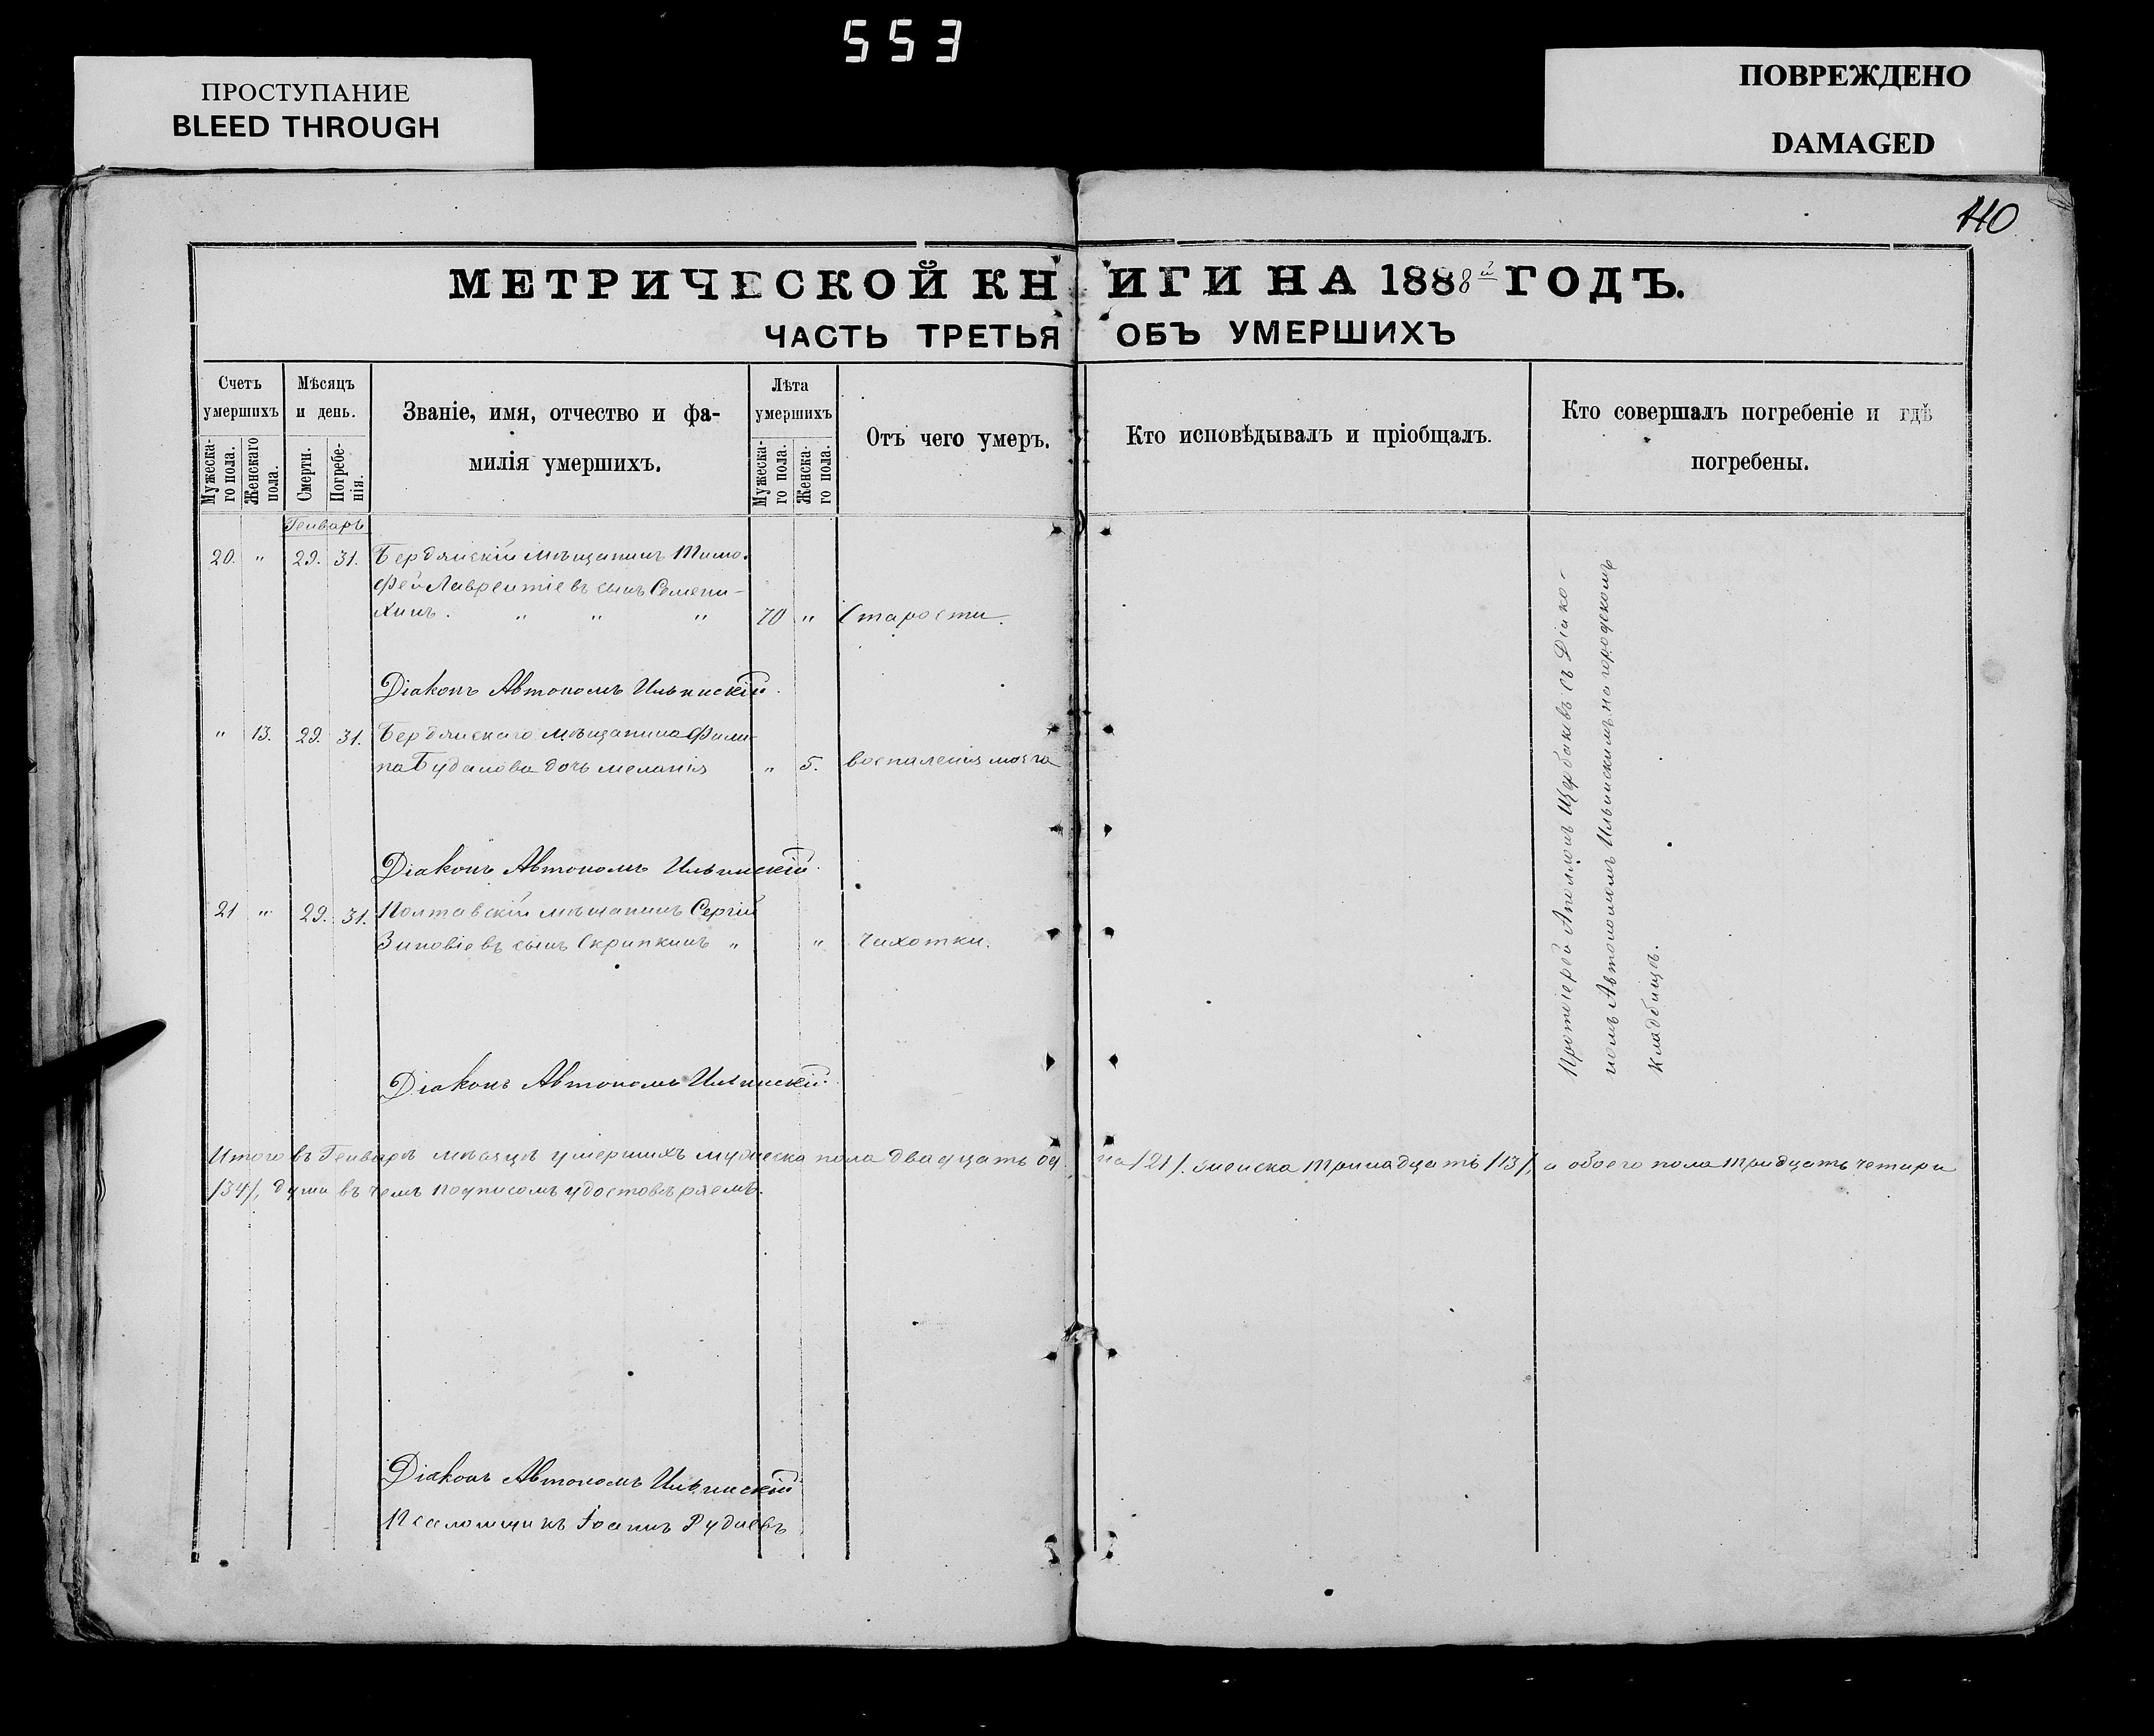 553
ПРОСТУПАНИЕ
BLEED THROUGH
ПОВРЕЖДЕНО
DAMAGED
110
МЕТРИЧЕСКОЙ КНИГИ НА 1888й ГОДЪ.
ЧАСТЬ ТРЕТЬЯ ОБЪ УМЕРШИХЪ
Счетъ умершихъ
Мужеска-го пола.
Женскаго пола.
Мѣсяцъ и день.
Смерти.
Погребе-нія.
Званіе, имя, отчество и фа-
милія умершихъ.
Лѣта умершихъ
Мужеска-го пола.
Женска-го пола.
Отъ чего умеръ.
Кто исповѣдывалъ и пріобщалъ.
Кто совершалъ погребеніе и гдѣ
погребены.
Генварь
20. " 29. 31. Бердянскій мѣщанинъ Тимо-
фей Лаврентіевъ сынъ Семени-
хинъ. " " " 70 " Старости.
Діаконъ Автономъ Ильинскій.
" 13. 29. 31. Бердянскаго мѣщанина Фили-
па Будалова дочь Меланія " 5. воспаленія мозга
Діаконъ Автономъ Ильинскій.
21 " 29. 31. Полтавскій мѣщанинъ Сергій
Зиновіевъ сынъ Скрипкинъ " " Чахотки.
Діаконъ Автономъ Ильинскій.
Протоіерей Аполлонъ Щербаковъ съ Діако-
номъ Автономомъ Ильинскимъ на городскомъ
кладбищѣ.
Итого въ Генварѣ мѣсяцѣ умершихъ мужеска пола двадцать одна /21/. женска тринадцать /13/, а обоего пола тридцать четыри
/34/, души въ чемъ подписомъ удостовѣряемъ.
Діаконъ Автономъ Ильинскій
Псаломщикъ Іоаннъ Рудневъ